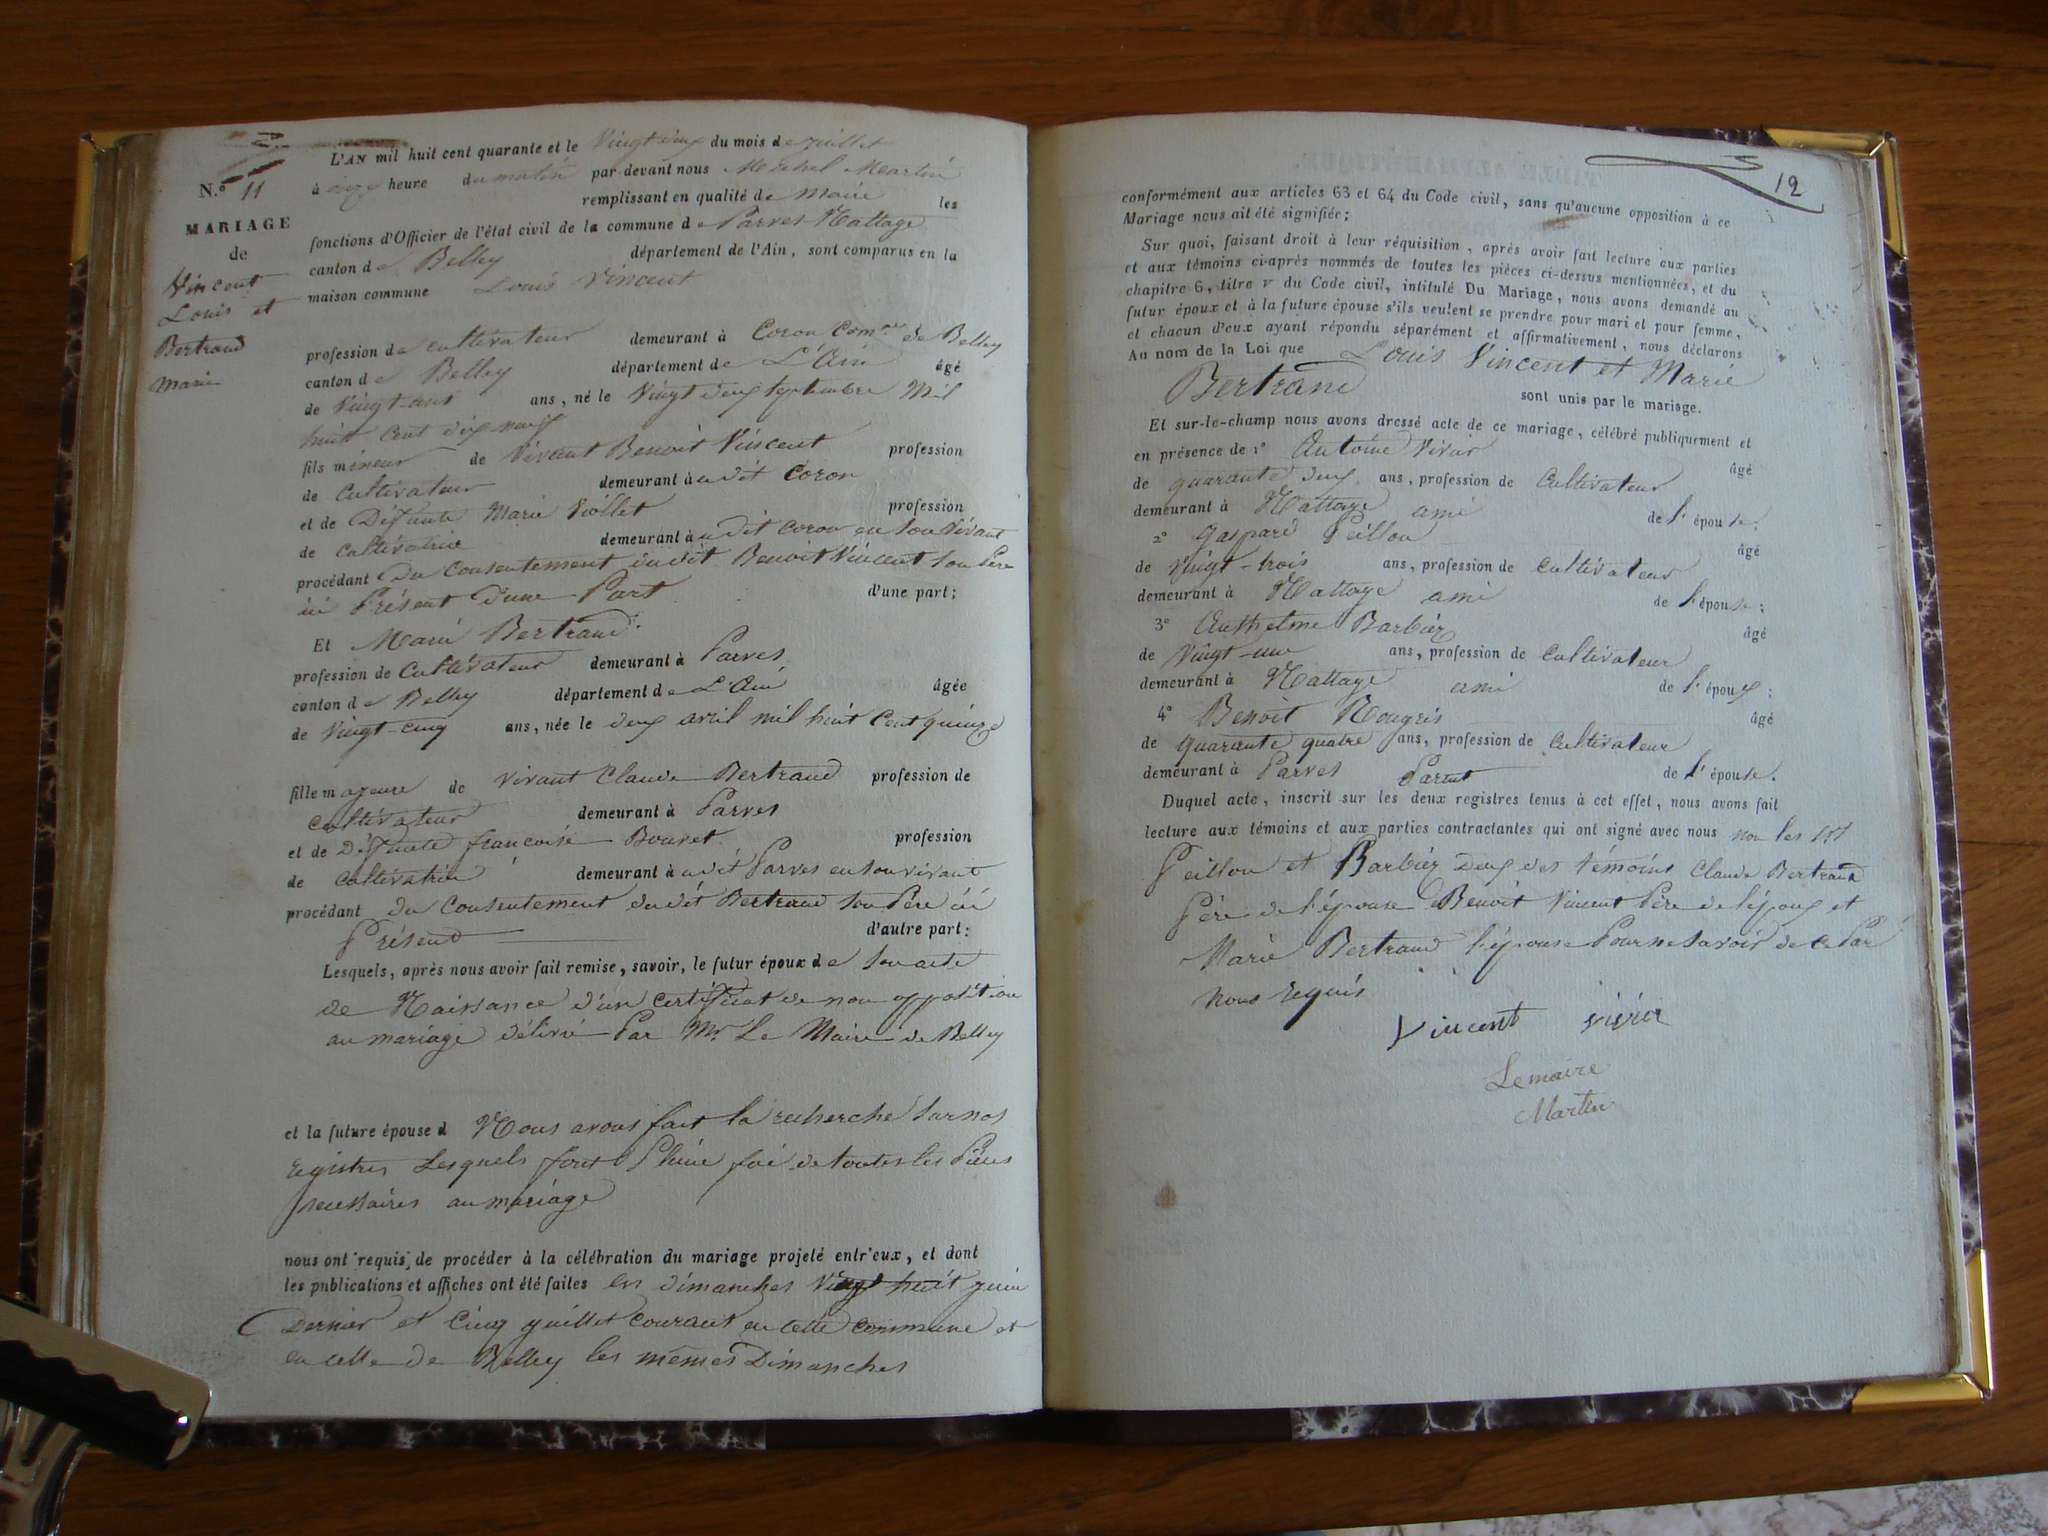 N.° 11
MARIAGE
de
Vincent
Louis et
Bertrand
marie
L'AN mil huit cent quarante et le Vingt deux du mois de Juillet
à onze heure du matin par devant nous Michel Martin
remplissant en qualité de Maire les
fonctions d'Officier de l'état civil de la commune de Parves Nattage
canton de Belley département de l'Ain, sont comparus en la
maison commune Louis Vincent
profession de cultivateur demeurant à Coron Com.ne de Belley
canton de Belley département de L'Ain âgé
de Vingt-ans ans, né le Vingt deux septembre Mil
huit cent dix neuf
fils mineur de Vivant Benoit Vincent profession
de Cultivateur demeurant à udit Coron
et de Défunte Marie Viollet profession
de Cultivatrice demeurant à udit Coron en son vivant
procédant Du Consentement dudit Benoit Vincent son Père
ici Présent D'une Part d'une part;
Et Marie Bertrand
profession de Cultivateur demeurant à Parves
canton de Belley département de L'Ain âgée
de Vingt-cinq ans, née le deux avril mil huit Cent quinze
fille majeure de vivant Claude Bertrand profession de
cultivateur demeurant à Parves
et de Défunte françoise Bouvet profession
de Cultivatrice demeurant à udit Parves en son vivant
procédant du Consentement dudit Bertrand son Père ici
Présend d'autre part:
Lesquels, après nous avoir fait remise, savoir, le futur époux de son acte
de Naissance d'un certificat de non opposition
au mariage délivré Par Mr. Le Maire de Belley
et la future épouse d Nous avons fait la recherche sur nos
registres Lesquels font Pleine foie de toutes les Pièces
necessaires au mariage
nous ont requis de procéder à la célébration du mariage projeté entr'eux, et dont
les publications et affiches ont été faites les dimanches Vingt huit juin
Dernier et Cinq juillet courant en cette commune et
en celle de Belley les mêmes Dimanches
12
conformément aux articles 63 et 64 du Code civil, sans qu'aucune opposition à ce
Mariage nous ait été signifiée;
Sur quoi, faisant droit à leur réquisition, après avoir fait lecture aux parties
et aux témoins ci-après nommés de toutes les pièces ci-dessus mentionnées, et du
chapitre 6, titre v du Code civil, intitulé Du Mariage, nous avons demandé au
futur époux et à la future épouse s'ils veulent se prendre pour mari et pour femme,
et chacun d'eux ayant répondu séparément et affirmativement, nous déclarons
Au nom de la Loi que Louis Vincent et Marie
Bertrand sont unis par le mariage.
Et sur-le-champ nous avons dressé acte de ce mariage, célébré publiquement et
en présence de 1° Antoine âgé
de quarante deux ans, profession de Cultivateur
demeurant à Nattage ami de l'épouse;
2° Gaspard Peillou âgé
de Vingt-trois ans, profession de Cultivateur
demeurant à Nattage ami de l'épouse;
3° Anthelme Barbier âgé
de Vingt-un ans, profession de Cultivateur
demeurant à Nattage ami de l'époux;
4° Benoit Nougris âgé
de quarante quatre ans, profession de Cultivateur
demeurant à Parves Parent de l'épouse.
Duquel acte, inscrit sur les deux registres tenus à cet effet, nous avons fait
lecture aux témoins et aux parties contractantes qui ont signé avec nous non les
Peillou et Barbier Deux des témoins Claude Bertrand
Père de l'épouse Benoit Vincent Père de l'époux et
Marie Bertrand l'épouse Pour ne savoir de ce Par
nous requis
Vincent
Lemaire
Martin